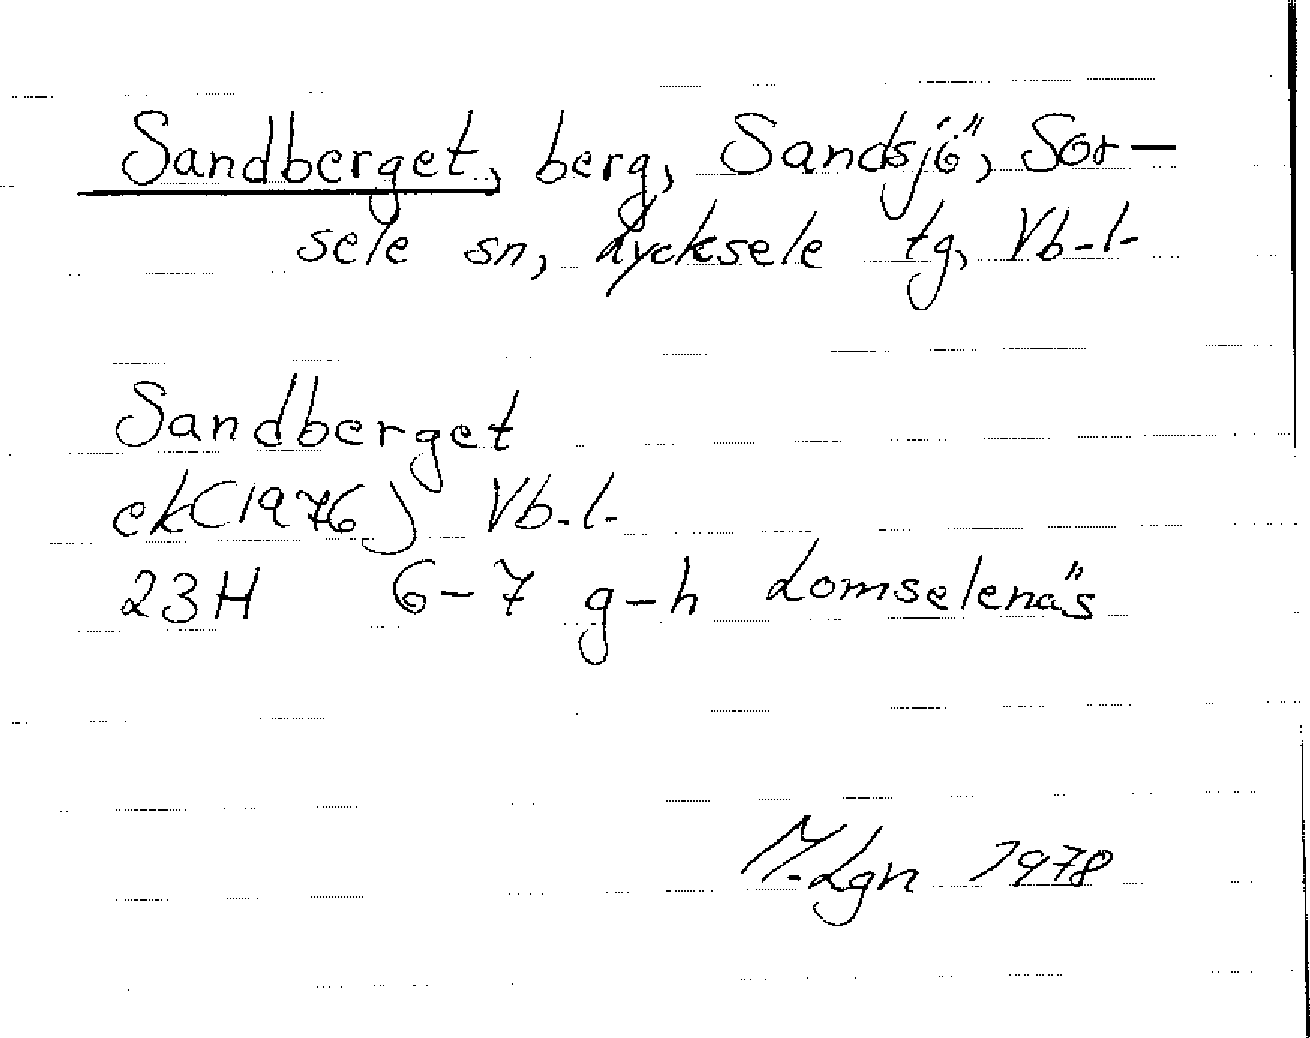 Sandberget, berg, Sandsjö, Sor-
sele sn, Lycksele tg, Vb.l.
Sandberget
ek(1976) Vb.l.
23H 6-7 g-h Lomselenäs
M.Lgn 1978